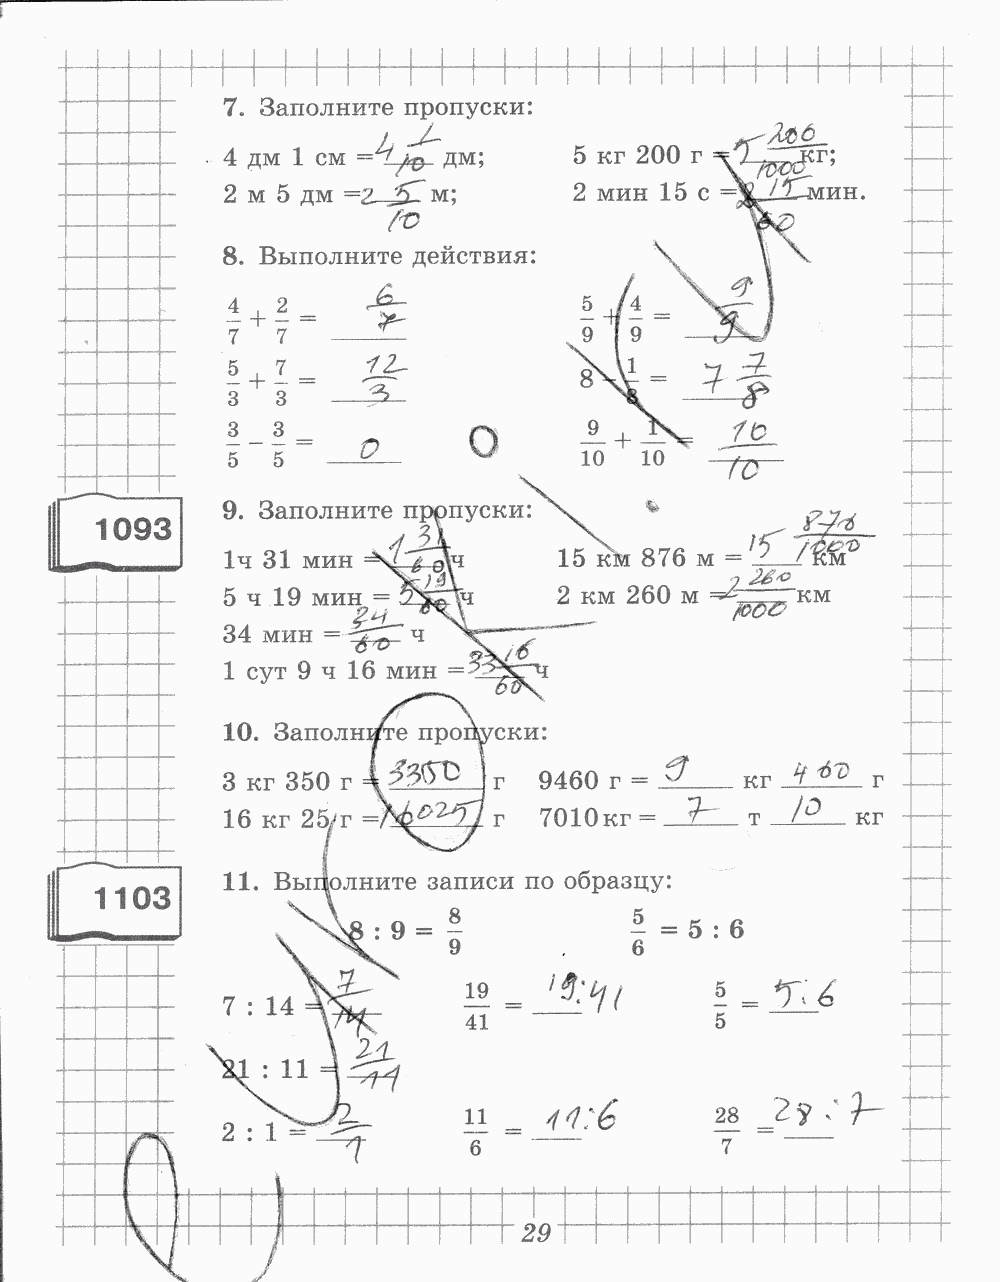 7. Заполните пропуски:
4 дм 1 см = 4 1/10 дм; 5 кг 200 г = 5 200/1000 кг;
2 м 5 дм = 2 5/10 м; 2 мин 15 с = 2 15/60 мин.
8. Выполните действия:
4/7 + 2/7 = 6/7 5/9 + 4/9 = 9/9
5/3 + 7/3 = 12/3 8 − 1/8 = 7 7/8
3/5 − 3/5 = 0 9/10 + 1/10 = 10/10
1093
9. Заполните пропуски:
1ч 31 мин = 1 31/60 ч 15 км 876 м = 15 876/1000 км
5 ч 19 мин = 5 19/60 ч 2 км 260 м = 2 260/1000 км
34 мин = 34/60 ч
1 сут 9 ч 16 мин = 33 16/60 ч
10. Заполните пропуски:
3 кг 350 г = 3350 г 9460 г = 9 кг 460 г
16 кг 25 г = 16025 г 7010 кг = 7 т 10 кг
1103
11. Выполните записи по образцу:
8 : 9 = 8/9 5/6 = 5 : 6
7 : 14 = 7/14 19/41 = 19:41 5/5 = 5:6
21 : 11 = 21/11
2 : 1 = 2/1 11/6 = 11:6 28/7 = 28:7
29